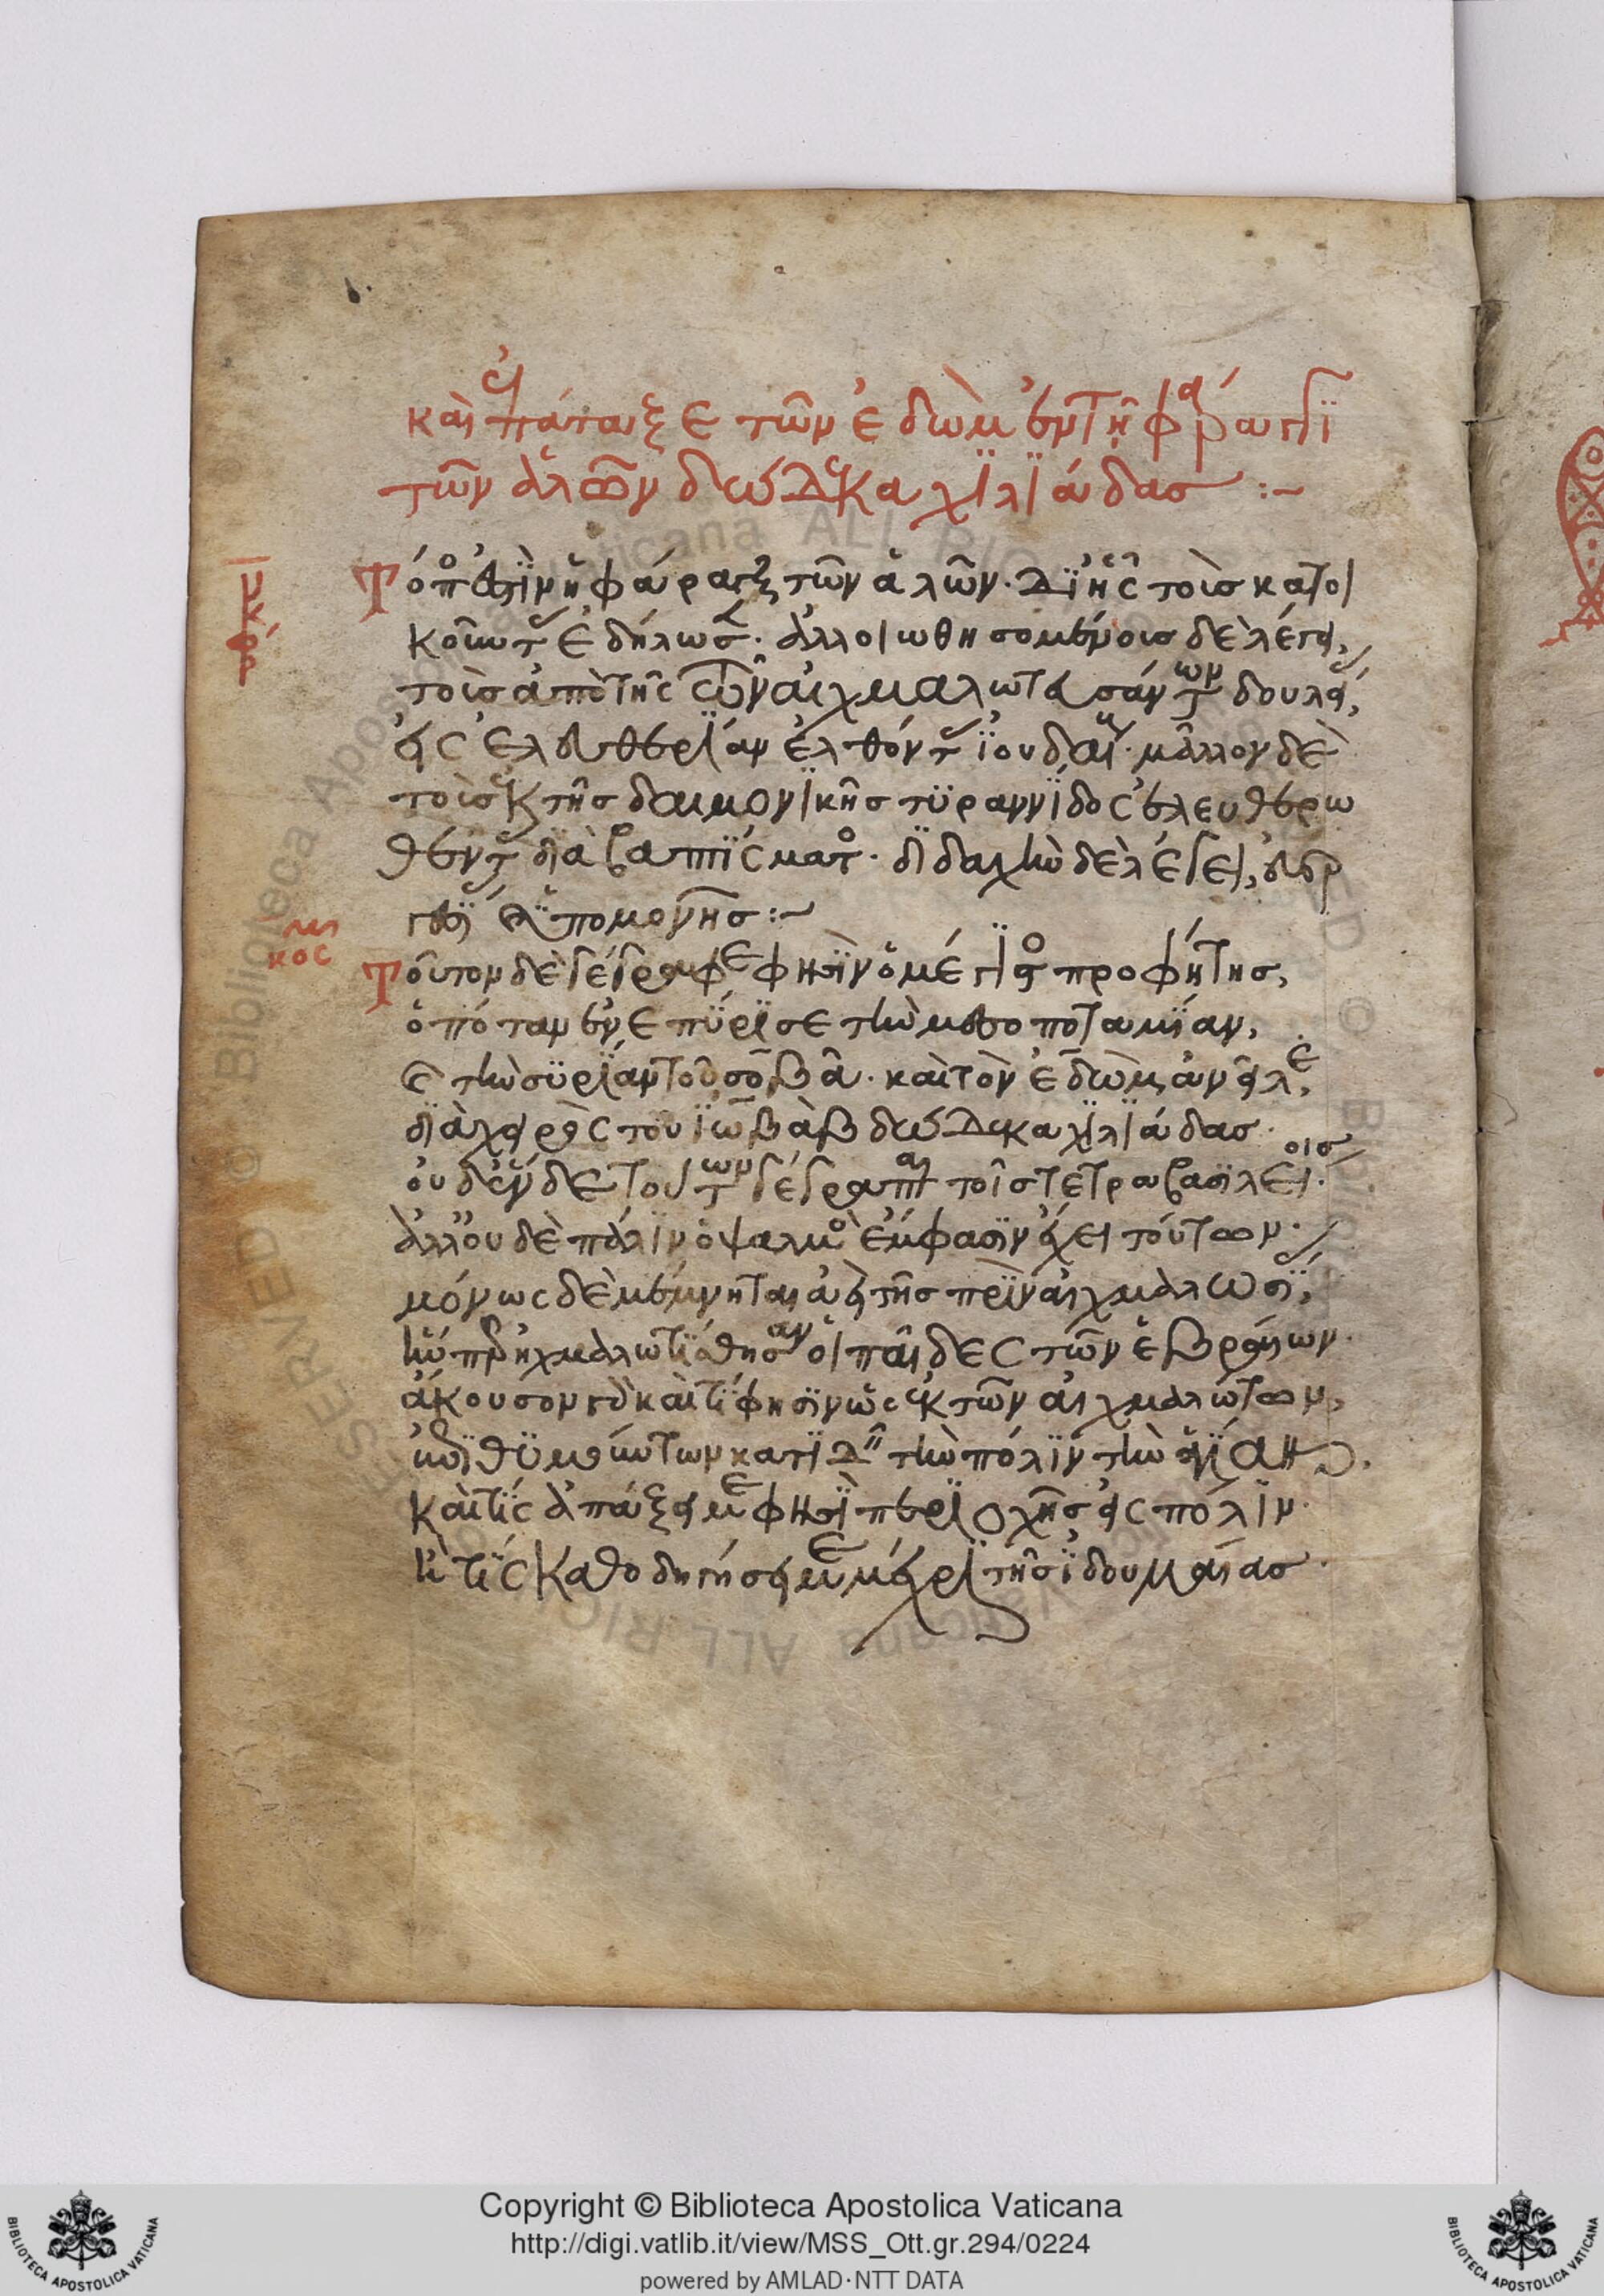 καὶ ἐπάταξε τῶν ἐδὼμ ἐν τῇ φάραγγι
τῶν ἁλῶν δώδεκα χιλιάδας :~
Τόπος ἐστὶν ἡ φάραγξ τῶν ἁλῶν. δι ἧς τοῖς κατοι
κοῦντας ἐδήλωσεν. ἀλλοιωθησομένοις δὲ λέγει,
τοῖς ἀπὸ τῆς τῶν αἰχμαλωτευσάντων δουλείας,
εἰς ἐλευθερίαν ἐλθόντας ἰουδαίοις. μᾶλλον δὲ
τοῖς ἐκ τῆς δαιμονικῆς τυραννίδος ἐλευθερω
θέντας διὰ βαπτίσματος. διδαχὴν δὲ λέγει,
ὑπομονῆς :~
Τοῦτον δὲ γέγραφε φησὶν ὁ μέγιστος προφήτης,
ὁπόταν ἐνεπύρισε τὴν μεσοποταμίαν,
τὴν συρίαν τοῦ σοβά. καὶ τὸν ἐδὼμ ἀνεῖλε,
διὰ χειρὸς τοῦ ἰωβὰβ δώδεκα χιλιάδας.
οὐδὲν δὲ τούτων γέγραπται τοῖς τέτρασι βασιλείοις.
ἄλλου δὲ πάλιν ὁ ψαλμὸς ἔμφασιν ἔχει τούτων.
μόνως δὲ μέμνηται ἀεὶ τῆς πρὶν αἰχμαλωσίας,
ἣν περ ᾐχμαλωτίσθησαν οἱ παῖδες τῶν ἑβραίων.
ἄκουσον γὰρ καὶ τί φησὶν ὡς ἐκ τῶν αἰχμαλώτων,
ἐπιθυμούντων κατιδεῖν τὴν πόλιν τὴν ἁγίαν.
καὶ τίς ἀπάξει με φησὶ περιοχῆς εἰς πόλιν.
ἢ τίς καθοδηγήσει με μέχρι τῆς ἰδουμαίας.
Copyright © Biblioteca Apostolica Vaticana
http://digi.vatlib.it/view/MSS_Ott.gr.294/0224
powered by AMLAD·NTT DATA
BIBLIOTECA APOSTOLICA VATICANA
BIBLIOTECA APOSTOLICA VATICANA